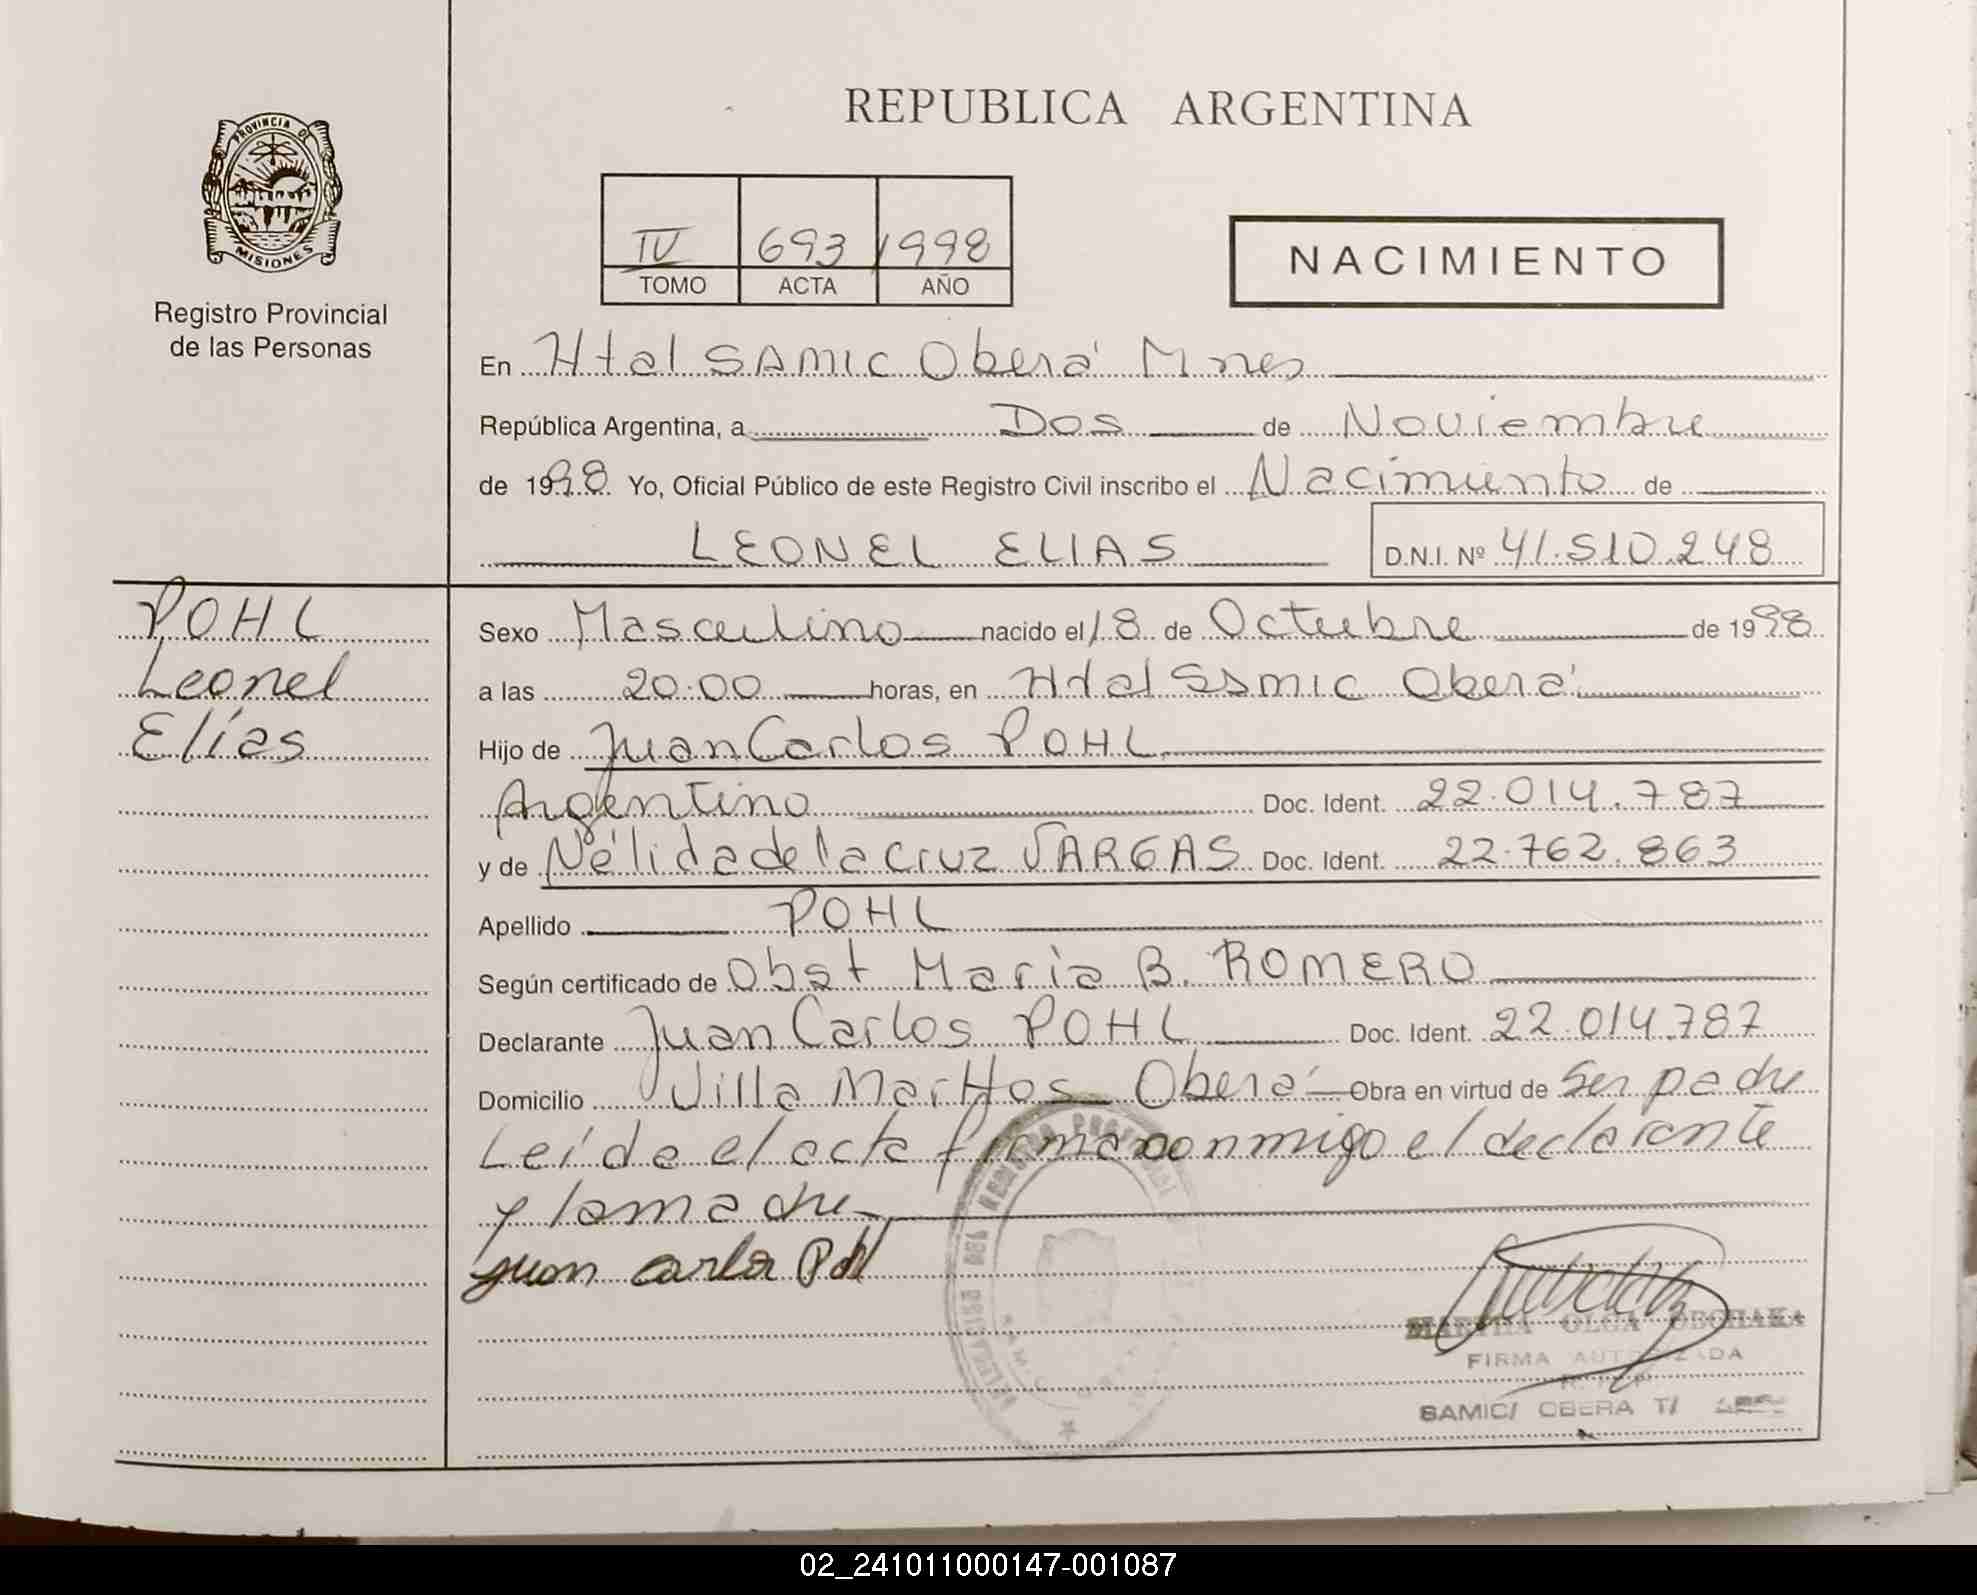 REPUBLICA ARGENTINA
PROVINCIA DE
MISIONES
Registro Provincial
de las Personas
IV 693 1998
TOMO ACTA AÑO
NACIMIENTO
En Htal SAMIC Oberá Mnes
República Argentina, a Dos de Noviembre
de 1998 Yo, Oficial Público de este Registro Civil inscribo el Nacimiento de
LEONEL ELIAS D.N.I. Nº 41.510.248
POHL
Leonel
Elías
Sexo Masculino nacido el 18 de Octubre de 1998
a las 20:00 horas, en Htal SAMIC Oberá
Hijo de Juan Carlos POHL
Argentino Doc. Ident. 22.014.787
y de Nélida de la Cruz VARGAS Doc. Ident. 22.762.863
Apellido POHL
Según certificado de Obst María B. ROMERO
Declarante Juan Carlos POHL Doc. Ident. 22.014.787
Domicilio Villa Martos Oberá Obra en virtud de Ser padre
Leída el acta firma conmigo el declarante
y la madre
Juan Carlos Pohl
MARTHA OLGA
FIRMA AUTORIZADA
SAMIC/ OBERA T/
02_241011000147-001087